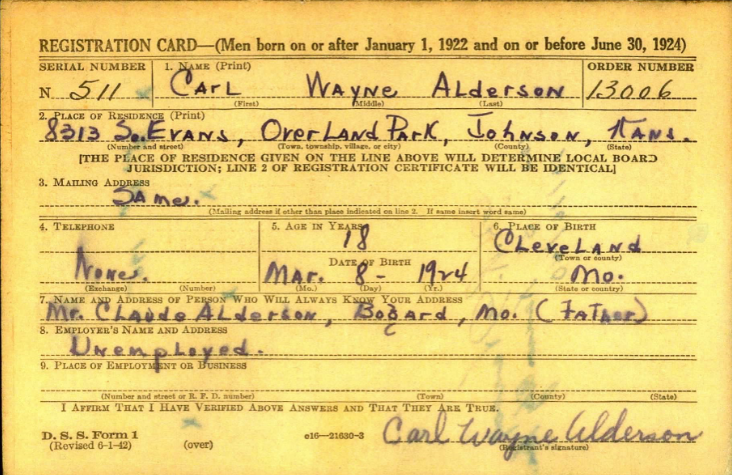 REGISTRATION CARD—(Men born on or after January 1, 1922 and on or before June 30, 1924)
SERIAL NUMBER 1. NAME (Print) ORDER NUMBER
N 511 CARL WAYNE ALDERSON 13006
(First) (Middle) (Last)
2. PLACE OF RESIDENCE (Print)
8313 So. EVANS, OVERLAND PARK, JOHNSON, KANS.
(Number and street) (Town, township, village, or city) (County) (State)
[THE PLACE OF RESIDENCE GIVEN ON THE LINE ABOVE WILL DETERMINE LOCAL BOARD
JURISDICTION; LINE 2 OF REGISTRATION CERTIFICATE WILL BE IDENTICAL]
3. MAILING ADDRESS
SAme.
(Mailing address if other than place indicated on line 2. If same insert word same)
4. TELEPHONE 5. AGE IN YEARS 6. PLACE OF BIRTH
18 CLEVELAND
DATE OF BIRTH (Town or county)
None. MAR. 8- 1924 Mo.
(Exchange) (Number) (Mo.) (Day) (Yr.) (State or country)
7. NAME AND ADDRESS OF PERSON WHO WILL ALWAYS KNOW YOUR ADDRESS
Mr. CLAUDE ALDERSON, Mo. (FATHER)
8. EMPLOYER'S NAME AND ADDRESS
Unemployed.
9. PLACE OF EMPLOYMENT OR BUSINESS
(Number and street or R. F. D. number) (Town) (County) (State)
I AFFIRM THAT I HAVE VERIFIED ABOVE ANSWERS AND THAT THEY ARE TRUE.
D. S. S. Form 1
(Revised 6-1-42) (over) c16—21630-3 Carl Wayne Alderson
(Registrant's signature)